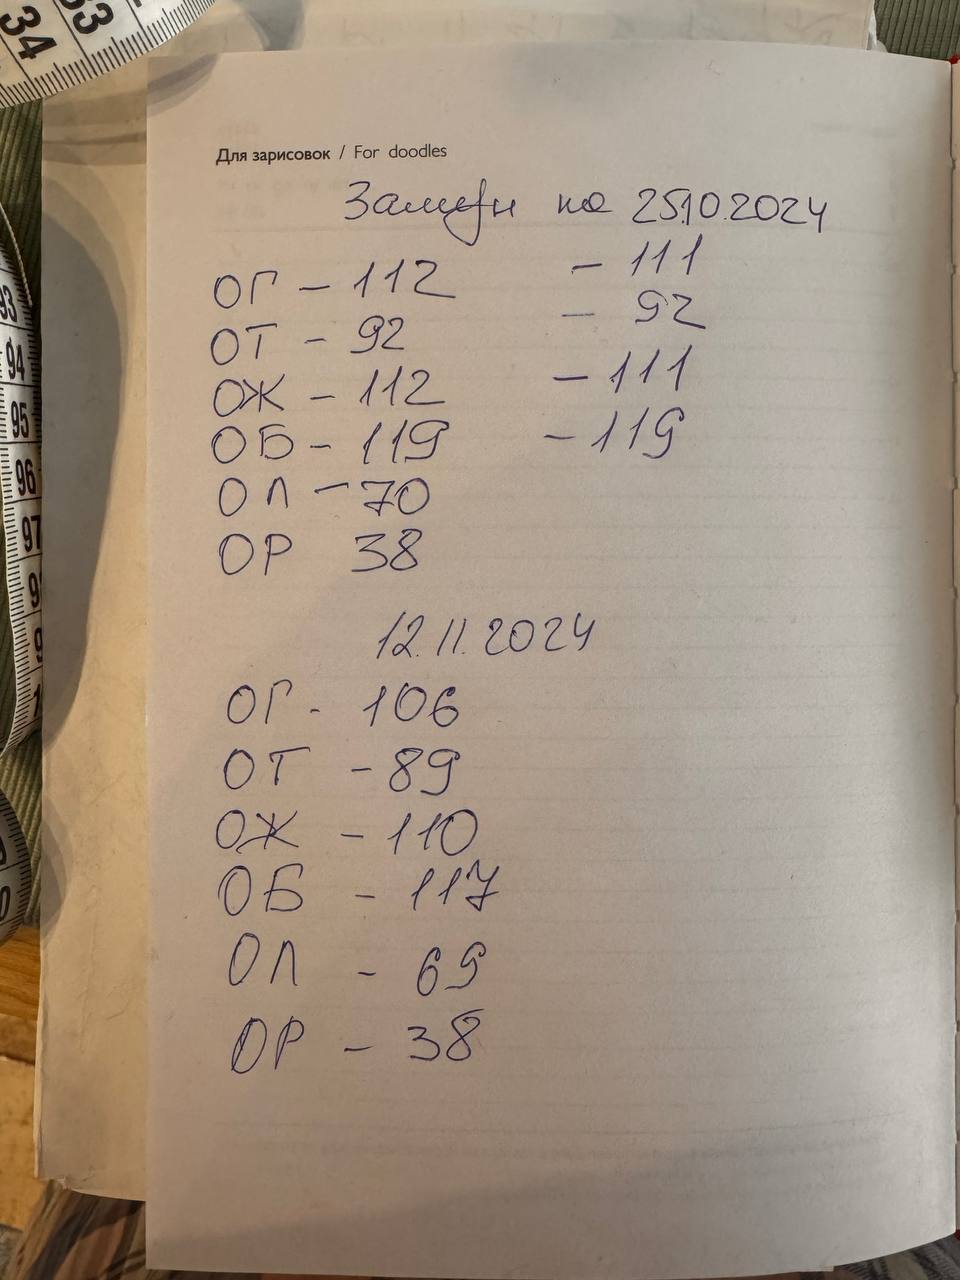 34 33
Для зарисовок / For doodles
Замеры на 25.10.2024
ОГ – 112 – 111
ОТ – 92 – 92
ОЖ – 112 – 111
ОБ – 119 – 119
ОЛ – 70
ОР 38
12.11.2024
ОГ - 106
ОТ - 89
ОЖ - 110
ОБ - 117
ОЛ - 69
ОР - 38
93
94
95
96
97